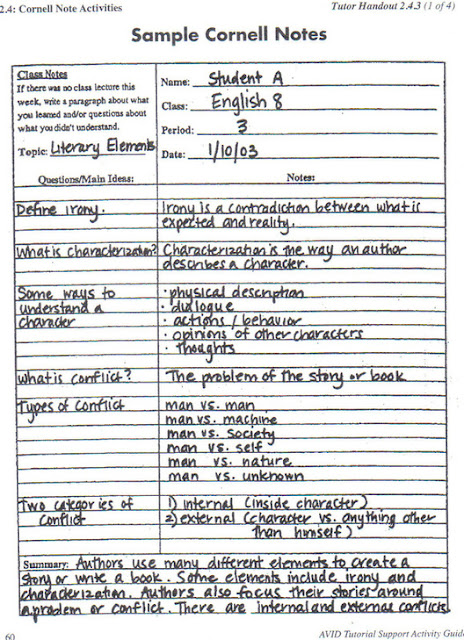 2.4: Cornell Note Activities
Tutor Handout 2.4.3 (1 of 4)
Sample Cornell Notes
Class Notes
If there was no class lecture this
week, write a paragraph about what
you learned and/or questions about
what you didn't understand.
Topic: Literary Elements
Name: Student A
Class: English 8
Period: 3
Date: 1/10/03
Questions/Main Ideas:
Notes:
Define irony.
Irony is a contradiction between what is
expected and reality.
What is characterization?
Characterization is the way an author
describes a character.
Some ways to
understand a
character
· physical description
· dialogue
· actions / behavior
· opinions of other characters
· thoughts
What is conflict?
The problem of the story or book
Types of Conflict
man vs. man
man vs. machine
man vs. society
man vs. self
man vs. nature
man vs. unknown
Two categories of
conflict
1) internal (inside character)
2) external (character vs. anything other
than himself)
Summary: Authors use many different elements to create a
story or write a book. Some elements include irony and
characterization. Authors also focus their stories around
a problem or conflict. There are internal and external conflicts
60
AVID Tutorial Support Activity Guide